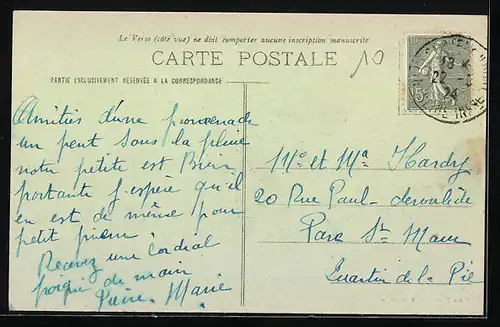 Le Verso (côté vue) ne doit comporter aucune inscription manuscrite
CARTE POSTALE
10
PARTIE EXCLUSIVEMENT RÉSERVÉE A LA CORRESPONDANCE
Amitiés d'une promenade
un peut sous la pluie
notre petite est Bien
portante j'espère qu'il
en est de même pour
petit pierre
Recevez une Cordial
poigné de main
Marie
Mr et Mme Hardy
20 Rue Paul-deroulède
Parc St Maur
Quartier de la Pie
15
24